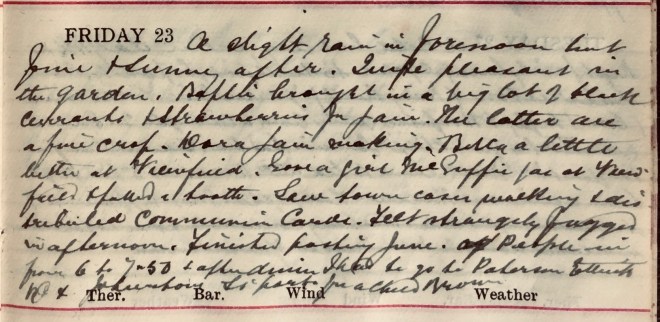 FRIDAY 23 A slight rain in forenoon but
fine & sunny after. Quite pleasant in
the garden. brought in a big lot of black
currants & strawberries for jam. The latter are
a fine crop. Dora jam making. Bella a little
better at Viewfield. a girl McGuffie at View-
field & a tooth. Saw town cases walking & dis-
tributed Communion Cards. Felt strangely fagged
in afternoon. Finished posting June. People in
from 6 to 7-50 & after dinner I had to go to Paterson
Rd & Brown
Ther. Bar. Wind Weather